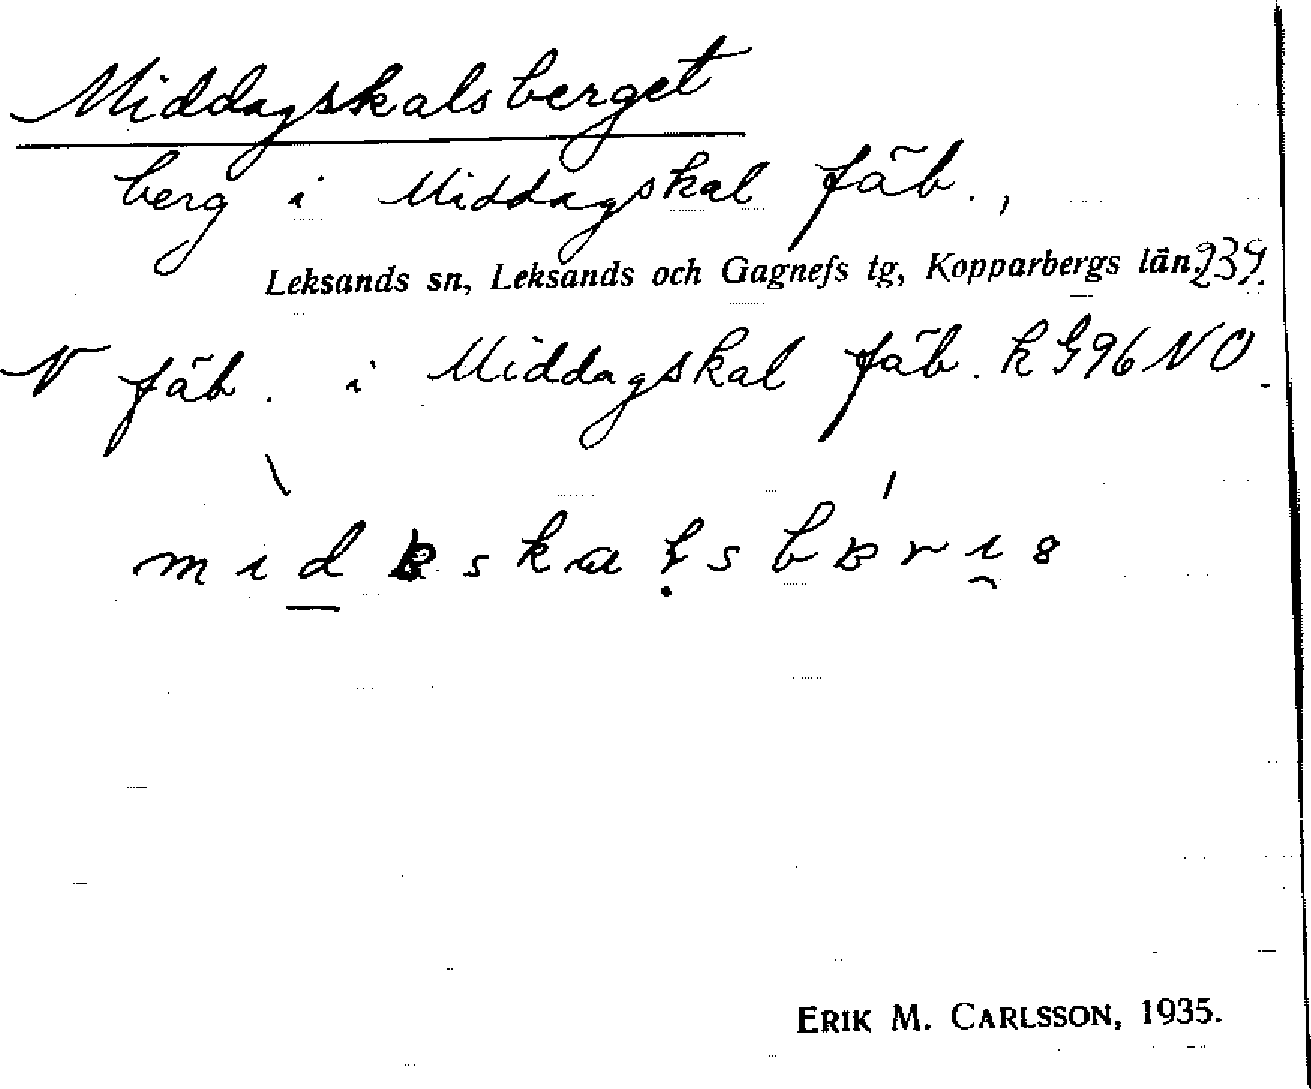 Middagskalsberget
berg i Middagskal fäb.,
Leksands sn, Leksands och Gagnefs tg, Kopparbergs län, 234.
N fäb. i Middagskal fäb. k G96 NO.
ERIK M. CARLSSON, 1935.